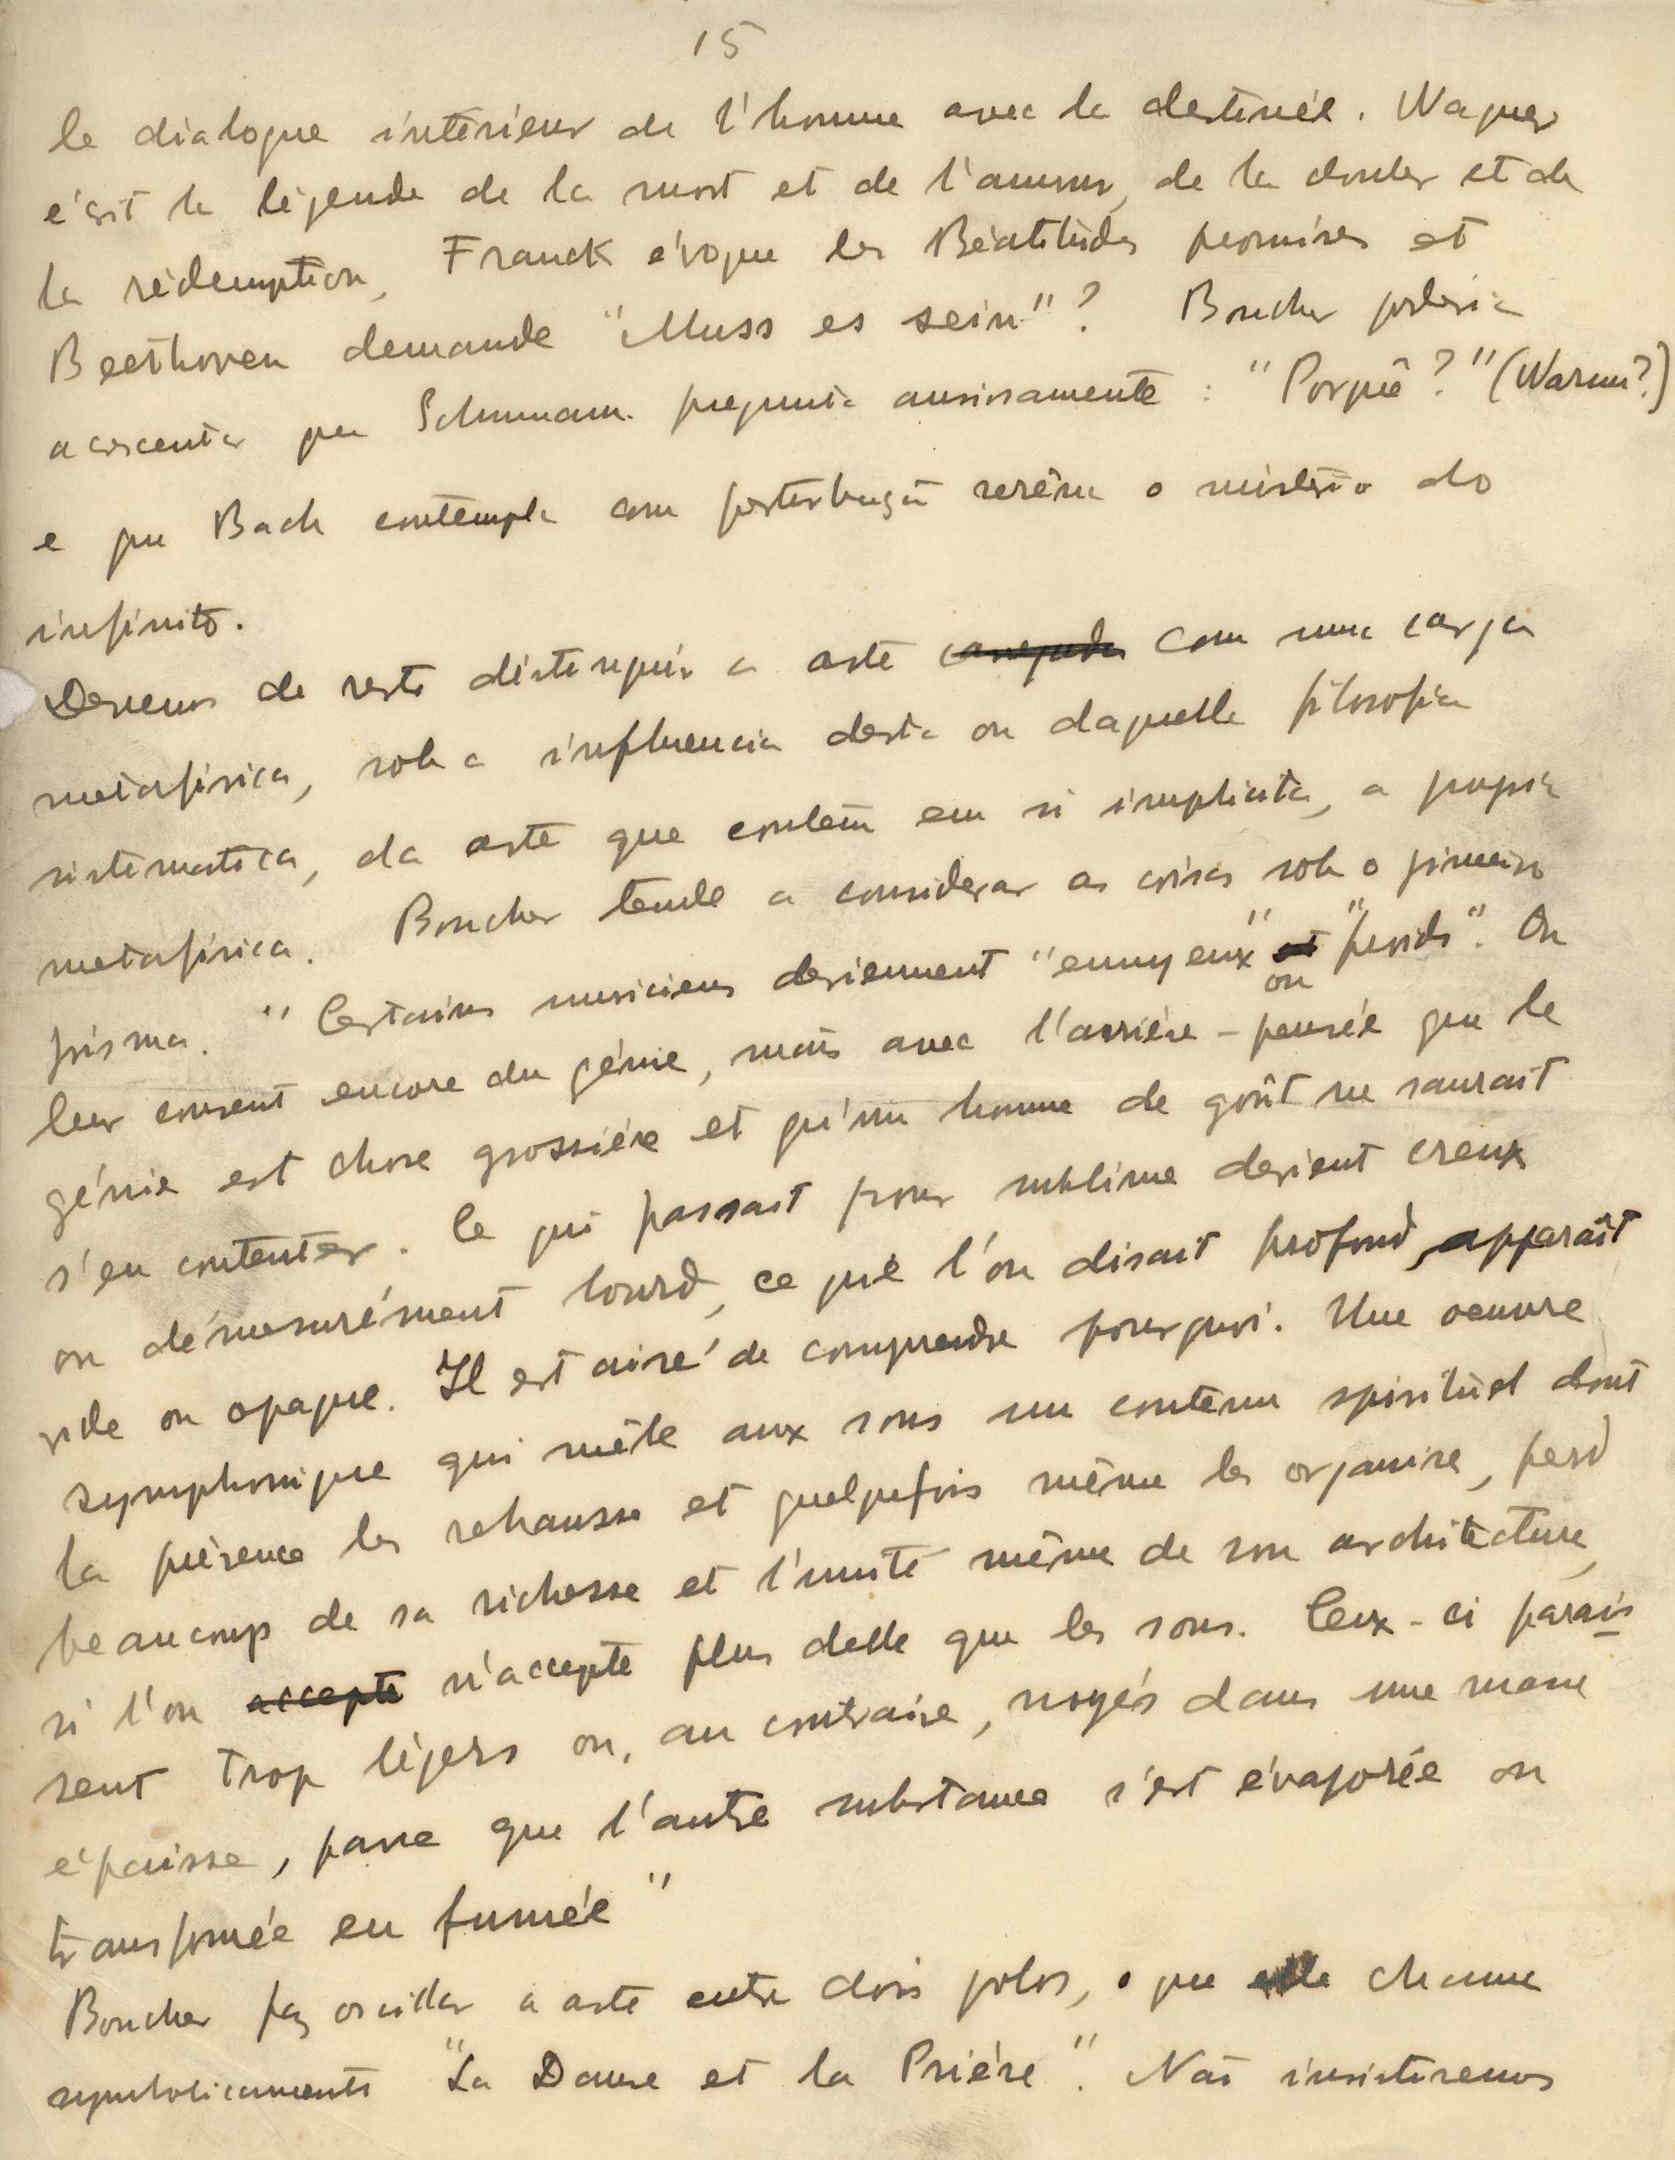 15
le dialogue intérieur de l'homme avec la destinée. Wagner
écrit la légende de la mort et de l'amour, de la douler et de
la rédemption, Franck évoque les Béatitudes promises et
Beethoven demande "Muss es sein"? Boucher poderia
acrescentar que Schumann pregunta ansiosamente: "Porquê?" (Warum?)
e que Bach contempla com perturbação serêna o mistério do
infinito.
Devemos de resto distinguir a arte carregada com uma carga
metafísica, sob a influencia desta ou daquella filosofia
sistematica, da arte que contem em si implicita, a propria
metafísica. Boucher tende a considerar as coisas sob o primeiro
prisma. "Certains musiciens deviennent "ennuyeux" et ou "froids". On
leur consent encore du génie, mais avec l'arrière-pensée que le
génie est chose grossière et qu'un homme de goût ne saurait
s'en contenter. Ce qui passait pour sublime devient creux
ou démesurément lourd, ce que l'on disait profond, apparaît
vide ou opaque. Il est aisé de comprendre pourquoi. Une oeuvre
symphonique qui mêle aux sons un contenu spirituel dont
la présence les rehausse et quelquefois même les organise, perd
beaucoup de sa richesse et l'unité même de son architecture,
si l'on accepte n'accepte plus delle que les sons. Ceux-ci parais
sent trop légers ou, au contraire, noyés dans une masse
épaisse, parce que l'autre substance s'est évaporée ou
transformée en fumée"
Boucher faz oscillar a arte entre dois polos, o que elle chama
symbolicamente "La Danse et la Prière". Não insistiremos